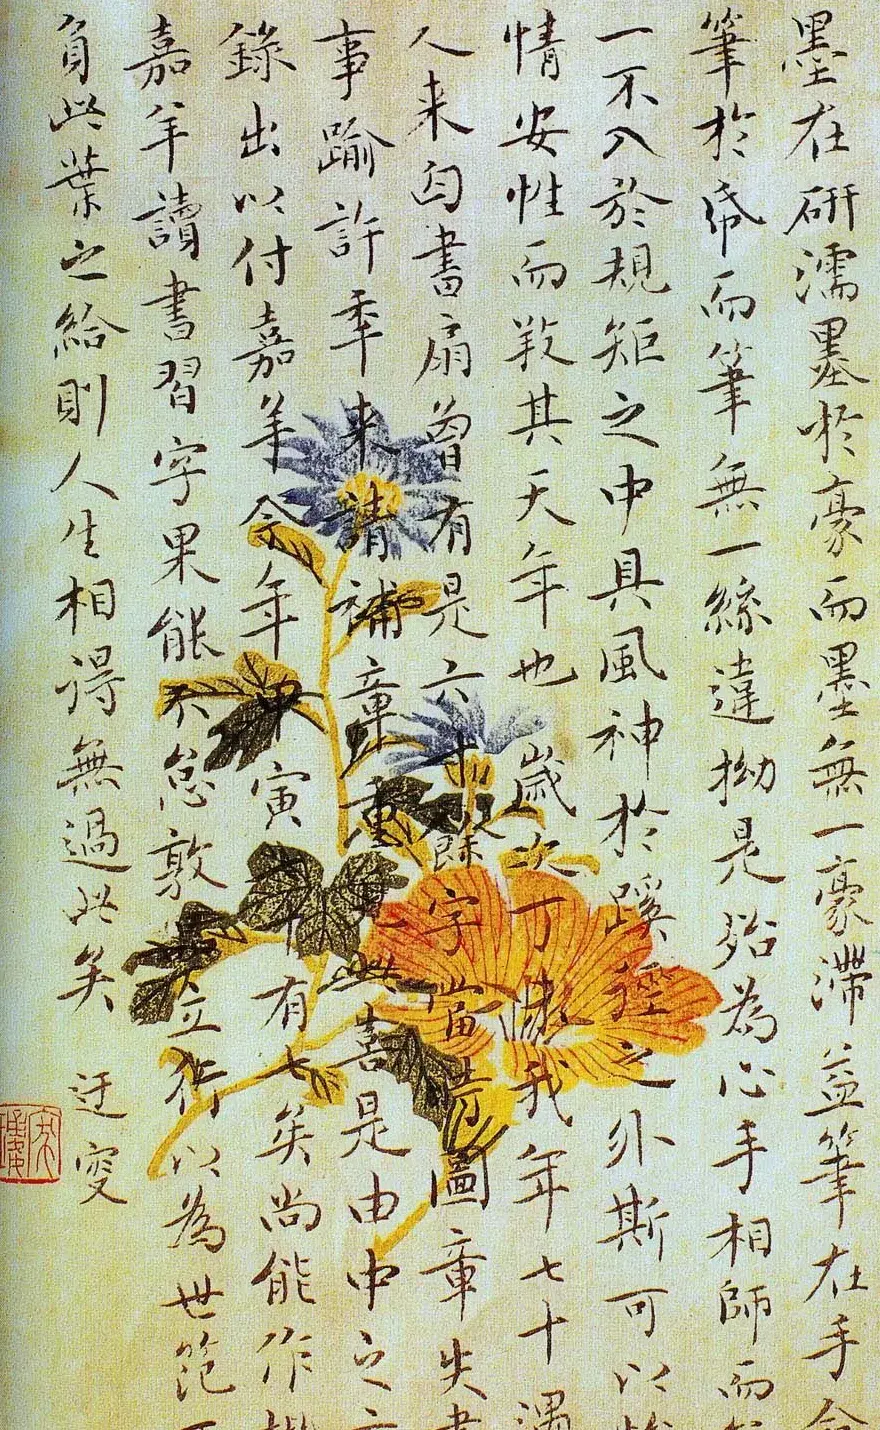 墨在研濡墨於豪而墨無一豪滯益筆在手
筆於帋而筆無一絲違拗是殆為心手相師而
一不入於規矩之中具風神於蹊徑之外斯可以
情安性而羖其天年也 歲次丁未我年七十
人来匄書扇曾有是六十餘字當時圖章失
事踰許秊来請補章重此喜是由中之
錄出以付嘉羊今年甲寅年有七矣尚能作
嘉羊讀書習字果能不怠敦立行以為世范
負此葉之給則人生相得無過此矣 迂叟